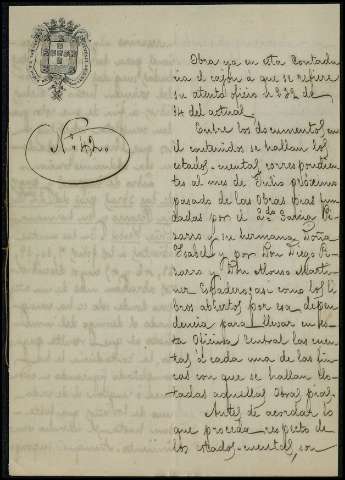 Obra ya en esta Contadu
ria el cajón a que se refiere
su atento oficio nº 232 de
14 del actual.
Entre los documentos en
él contenidos se hallan los
estados mental, correspondien
tes al mes de Julio próximo
pasado de las Obras pias fun
dadas por el García Pi
zarro y su hermana Doña
Isabel y por Don Diego Pi
zarro y Don Alonso Marti
nez Españadero; asi como los li
bros abiertos por esa depen
dencia para llevar en es
ta Oficina Central las cuen
tas á cada una de las fin
cas con que se hallan do
tadas aquellas Obras pias.
Antes de acordar lo
que proceda respecto de
los estados mental, son